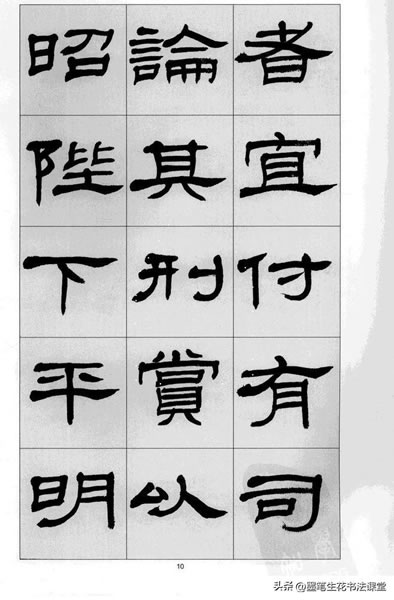 者宜付有司
論其刑賞以
昭陛下平明
10
头条@墨笔生花书法课堂